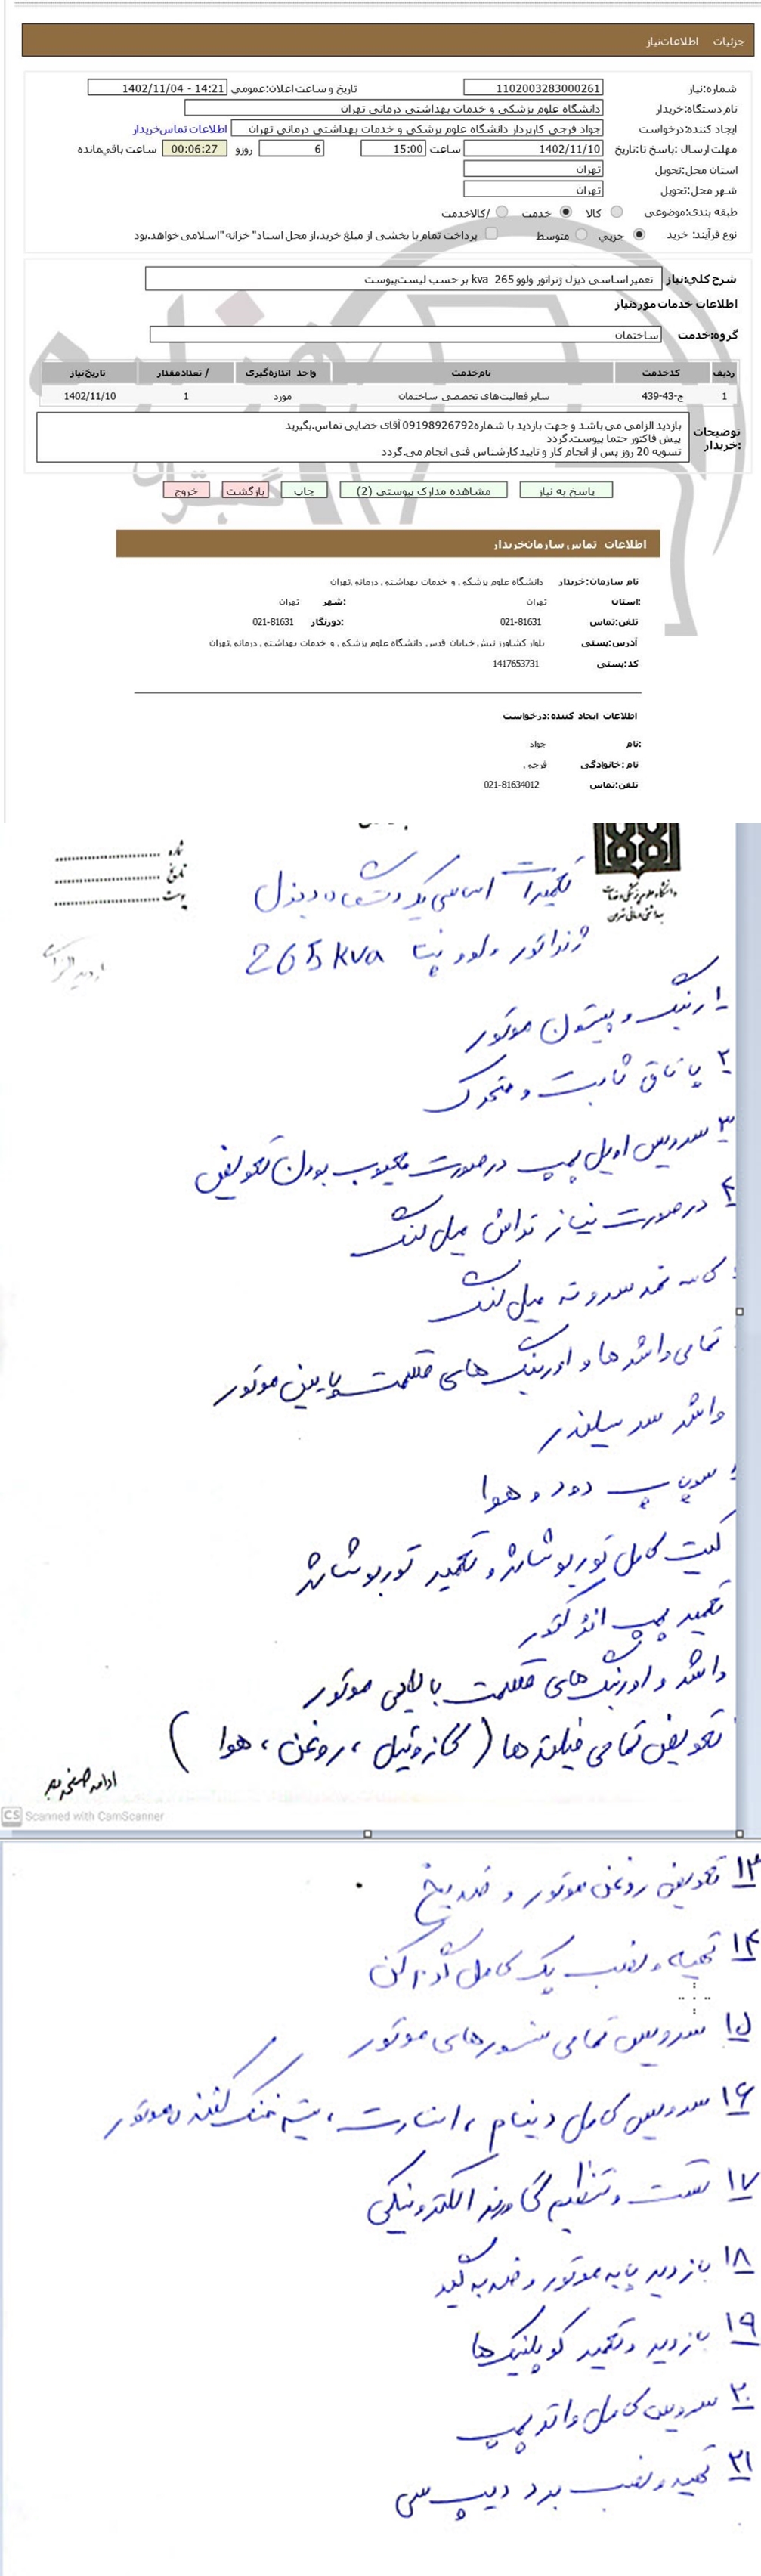 جزئیات اطلاعات نیاز
شماره نیاز: 1102003283000261 تاریخ و ساعت اعلان عمومی: 1402/11/04 - 14:21
نام دستگاه خریدار: دانشگاه علوم پزشکی و خدمات بهداشتی درمانی تهران
ایجاد کننده درخواست: جواد فرجی کارپرداز دانشگاه علوم پزشکی و خدمات بهداشتی درمانی تهران اطلاعات تماس خریدار
مهلت ارسال پاسخ: تا تاریخ: 1402/11/10 ساعت 15:00 6 روزو 00:06:27 ساعت باقی مانده
استان محل تحویل: تهران
شهر محل تحویل: تهران
طبقه بندی موضوعی: کالا خدمت کالا/خدمت
نوع فرآیند خرید: جزیی متوسط پرداخت تمام یا بخشی از مبلغ خرید،از محل اسناد "خزانه اسلامی" خواهد بود.
شرح کلی نیاز: تعمیر اساسی دیزل ژنراتور ولوو 265 kva بر حسب لیست پیوست
اطلاعات خدمات مورد نیاز
گروه خدمت: ساختمان
ردیف کد خدمت نام خدمت واحد اندازه گیری تعداد / مقدار تاریخ نیاز
1 ج-43-439 سایر فعالیت‌های تخصصی ساختمان مورد 1 1402/11/10
توضیحات خریدار: بازدید الزامی می باشد و جهت بازدید با شماره09198926792 آقای خضایی تماس بگیرید.
پیش فاکتور حتما پیوست گردد.
تسویه 20 روز پس از انجام کار و تایید کارشناس فنی انجام می گردد.
پاسخ به نیاز مشاهده مدارک پیوستی (2) چاپ بازگشت خروج
اطلاعات تماس سازمان خریدار
نام سازمان خریدار: دانشگاه علوم پزشکی و خدمات بهداشتی درمانی تهران
استان: تهران شهر: تهران
تلفن تماس: 021-81631 دورنگار: 021-81631
آدرس پستی: بلوار کشاورز نبش خیابان قدس دانشگاه علوم پزشکی و خدمات بهداشتی درمانی تهران
کد پستی: 1417653731
اطلاعات ایجاد کننده درخواست:
نام: جواد
نام خانوادگی: فرجی
تلفن تماس: 021-81634012
شماره
تاریخ
پیوست
دانشگاه علوم پزشکی و خدمات
بهداشتی درمانی تهران
تعمیرات اساسی یک دستگاه دیزل
ژنراتور ولوو پنتا 265 kva
۱ رینگ و پیستون موتور
۲ یاتاقان ثابت و متحرک
۳ سرویس اویل پمپ درصورت معیوب بودن تعویض
۴ درصورت نیاز تراش میل لنگ
کاسه نمد سر و ته میل لنگ
تمامی واشرها و اورینگ های قسمت پایین موتور
واشر سر سیلندر
سوپاپ دود و هوا
کیت کامل توربوشارژ و تعمیر توربوشارژ
تعمیر پمپ انژکتور
واشر و اورینگ های قسمت بالایی موتور
تعویض تمامی فیلترها (گازوئیل ، روغن ، هوا)
ادامه صفحه بعد
CS Scanned with CamScanner
۱۳ تعویض روغن موتور و ضد یخ
۱۴ تهیه و نصب یک کامل گرم کن
۱۵ سرویس تمامی سنسورهای موتور
۱۶ سرویس کامل دینام ، استارت ، خنک کننده موتور
۱۷ تست و تنظیم گاورنر الکترونیکی
۱۸ بازدید پایه موتور و ضربه گیر
۱۹ بازدید و تعمیر کوپلینگ ها
۲۰ سرویس کامل واتر پمپ
۲۱ تهیه و نصب برد دیپ سی